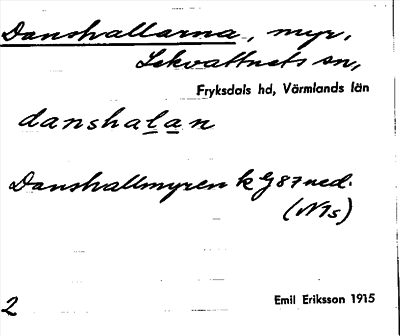 Danshallarna, myr,
Lekvattnets sn,
Fryksdals hd, Värmlands län
danshalan
Danshallmyren k Ej 87 ned.
(N1s)
2
Emil Eriksson 1915